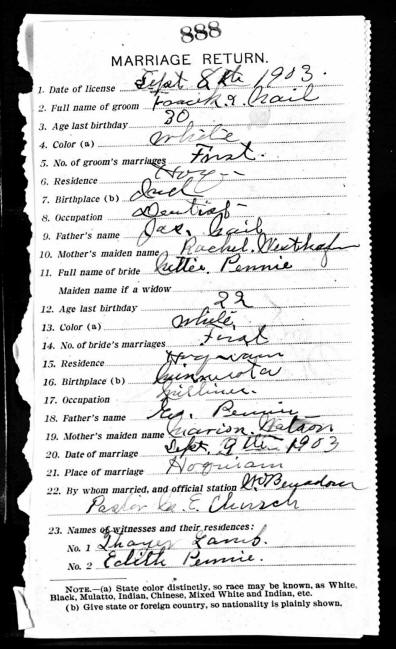 888
MARRIAGE RETURN.
1. Date of license Sept 8th 1903.
2. Full name of groom Nail
3. Age last birthday 30
4. Color (a) White
5. No. of groom's marriages First.
6. Residence Hoq
7. Birthplace (b) Ind
8. Occupation Dentist
9. Father's name Jas. Nail
10. Mother's maiden name Rachel Westhafer
11. Full name of bride Pennie
Maiden name if a widow
12. Age last birthday 22
13. Color (a) White
14. No. of bride's marriages First
15. Residence Hoquiam
16. Birthplace (b) Minnesota
17. Occupation Milliner
18. Father's name Pennie
19. Mother's maiden name Marion Watson
20. Date of marriage Sept. 9th 1903
21. Place of marriage Hoquiam
22. By whom married, and official station
Pastor M. E. Church
23. Names of witnesses and their residences:
No. 1 Thayer Lamb.
No. 2 Edith Pennie.
NOTE.—(a) State color distinctly, so race may be known, as White,
Black, Mulatto, Indian, Chinese, Mixed White and Indian, etc.
(b) Give state or foreign country, so nationality is plainly shown.